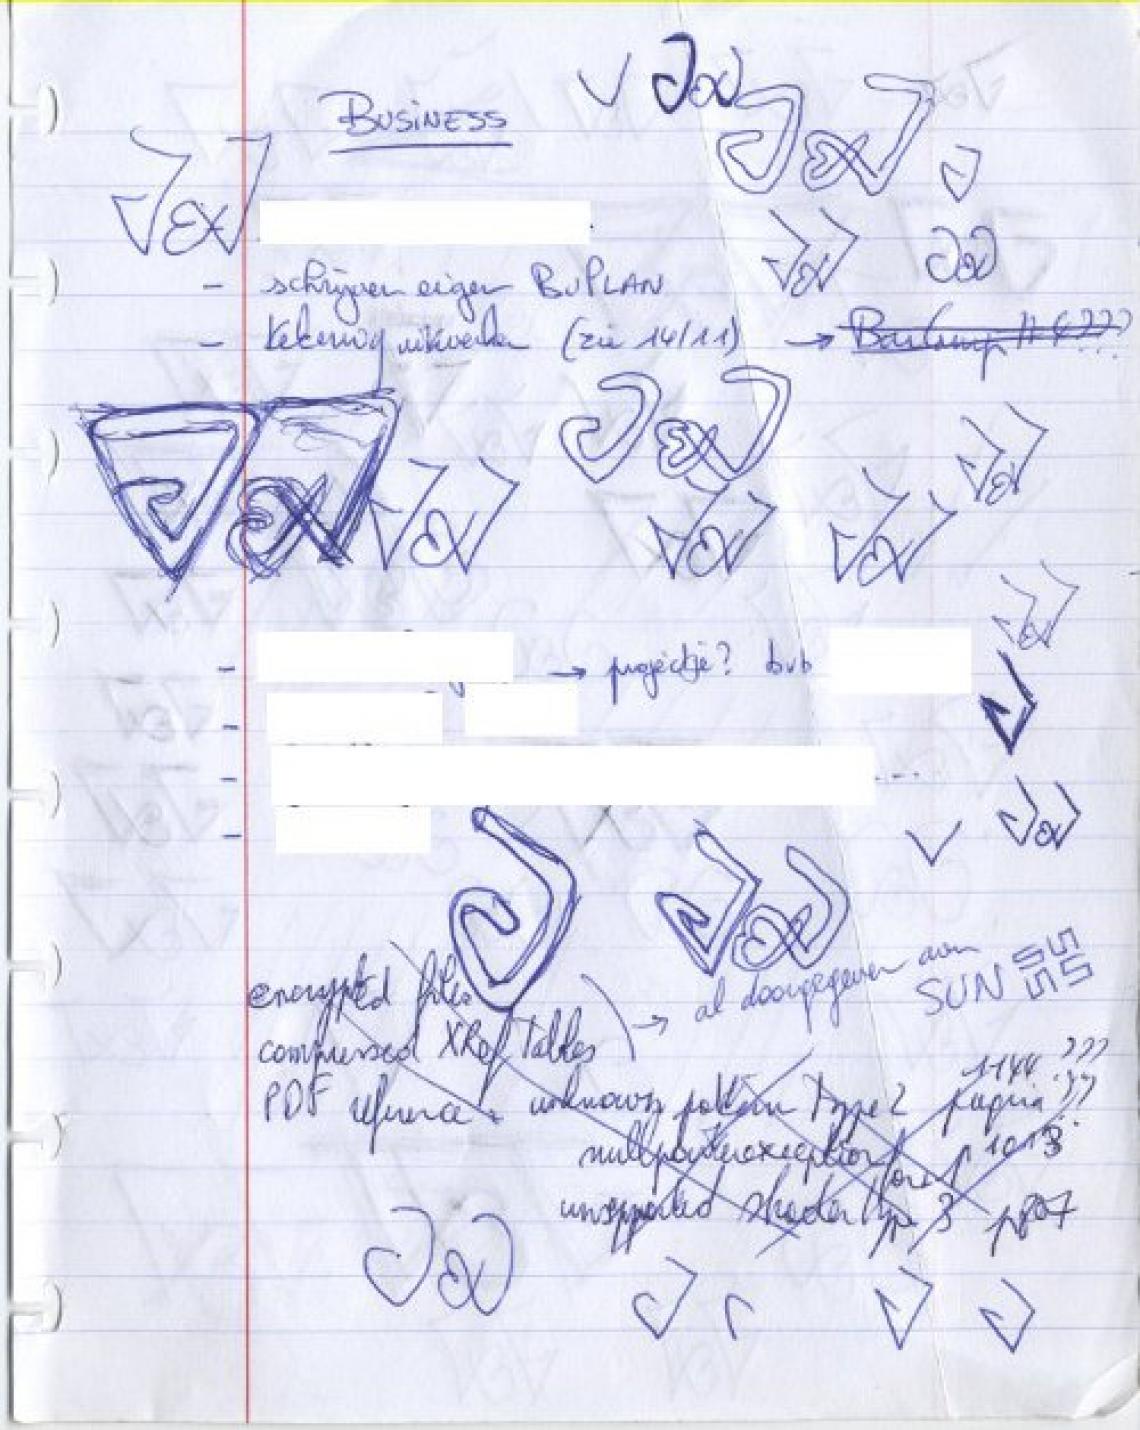 BUSINESS
- schrijven eigen BUPLAN
- Rekening uitwerken (zie 14/11) → BarCamp # 6???
- → projectje? bvb
-
-
-
encrypted files
compressed XRef Tables
→ al doorgegeven aan SUN
PDF reference: unknown pattern Type 2 pagina 1144 ???
nullpointerexception op p 1013
unsupported shader type 3 p 807